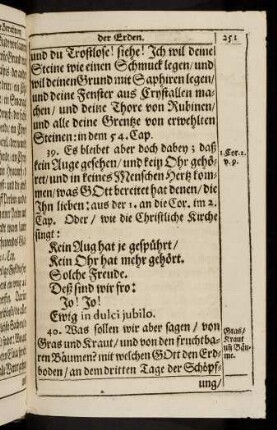 der Erden.
251
und du Trostlose! siehe! Ich wil deine
Steine wie einen Schmuck legen/ und
wil deinen Grund mit Saphiren legen/
und deine Fenster aus Crystallen ma-
chen/ und deine Thore von Rubinen/
und alle deine Grentze von erwehlten
Steinen: in dem 54. Cap.
39. Es bleibet aber doch dabey; daß
kein Auge gesehen/ und kein Ohr gehö-
ret und in keines Menschen Hertz kom-
men/ was GOtt bereitet hat denen/ die
Ihn lieben: aus der 1. an die Cor. im 2.
Cap. Oder/ wie die Christliche Kirche
singt:
1. Cor. 2.
v. 9.
Kein Aug hat je gespührt/
Kein Ohr hat mehr gehört.
Solche Freude.
Deß sind wir fro:
Jo! Jo!
Ewig in dulci jubilo.
40. Was sollen wir aber sagen/ von
Gras und Kraut/ und von den fruchtba-
ren Bäumen? mit welchen GOtt den Erd-
boden/ an dem dritten Tage der Schöpf-
ung/
Gras/
Kraut
uñ Bäu-
me.